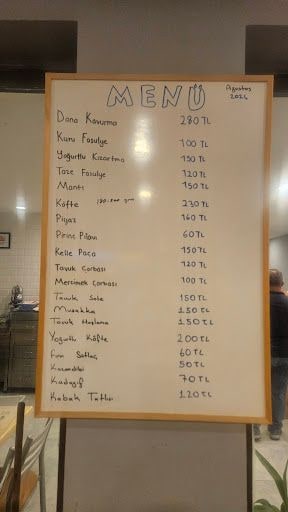 MENÜ
Ağustos
2024
Dana Kavurma 280 TL
Kuru Fasulye 100 TL
Yoğurtlu Kızartma 150 TL
Taze Fasulye 120 TL
Mantı 150 TL
Köfte 230 TL
Piyaz 160 TL
Pirinc Pilavı 60 TL
Kelle Paça 150 TL
Tavuk Çorbası 120 TL
Mercimek Çorbası 100 TL
Tavuk Sote 150 TL
Musakka 150 TL
Tavuk Haşlama 150 TL
Yoğurtlu Köfte 200 TL
Fırın Sütlaç 60 TL
Kazandibi 50 TL
Kadayıf 70 TL
Kabak Tatlısı 120 TL